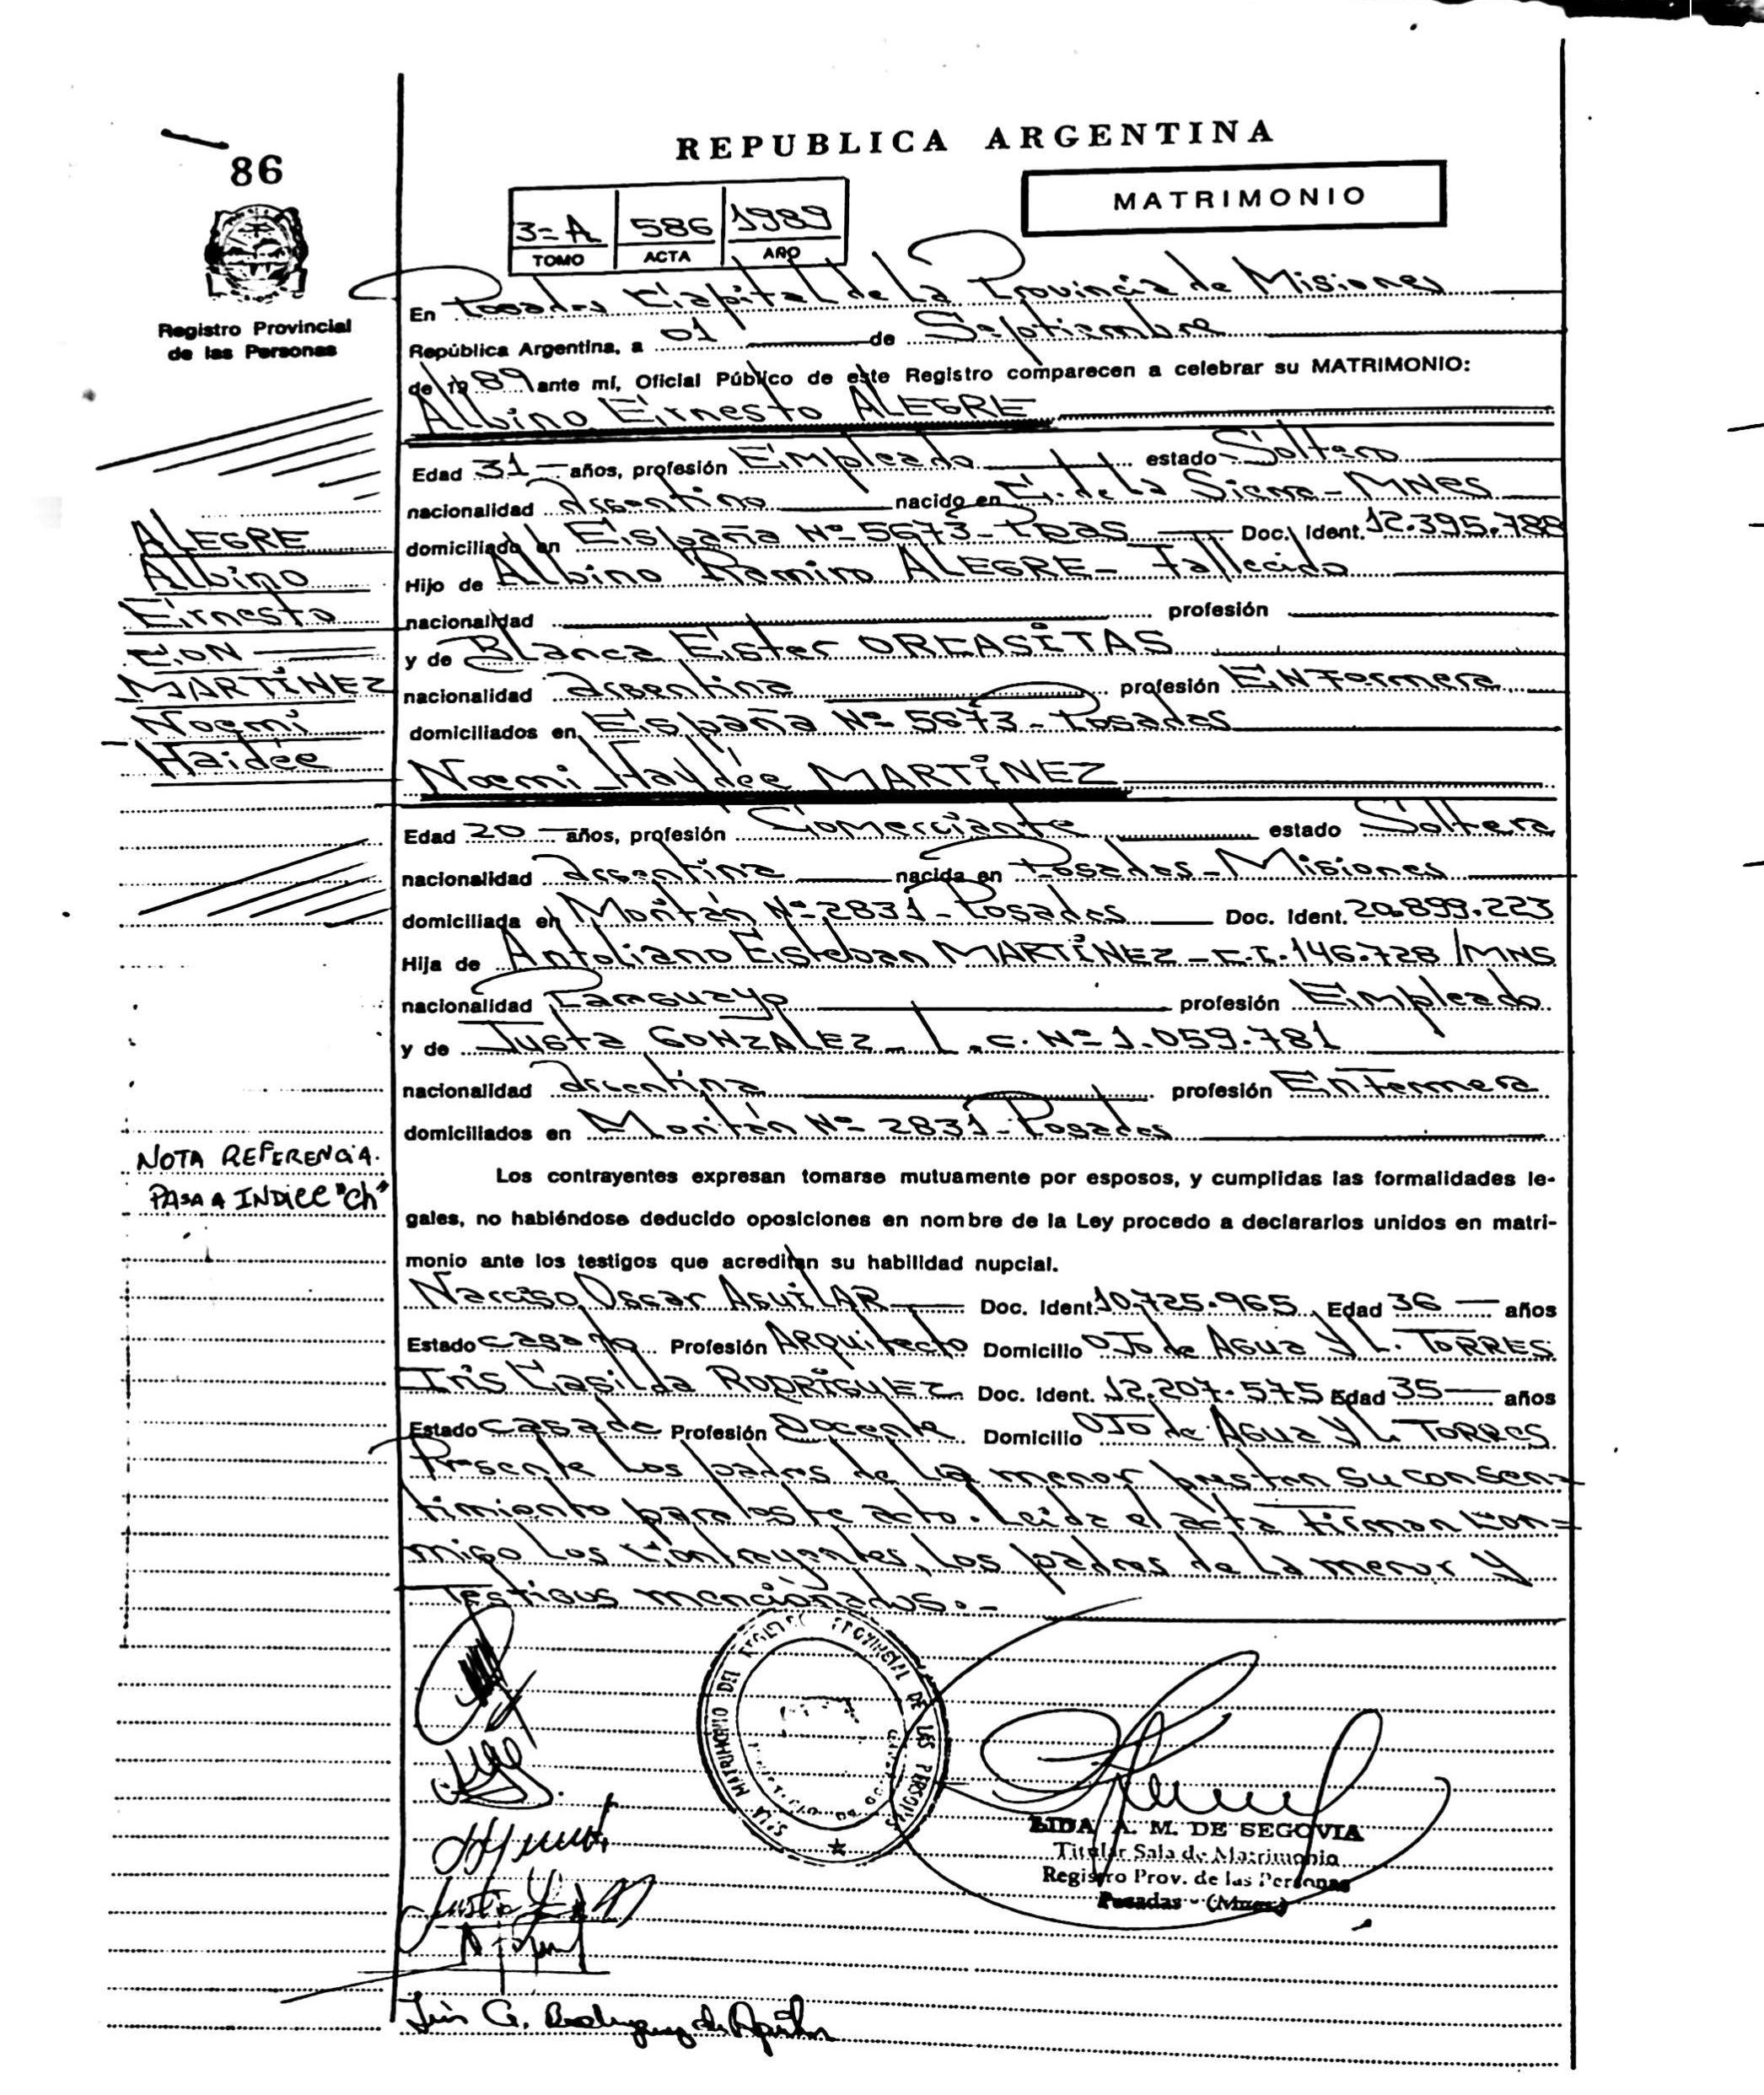 REPUBLICA ARGENTINA
86
MATRIMONIO
3=A 586 1989
TOMO ACTA AÑO
Registro Provincial
de las Personas
En Posadas Capital de la Provincia de Misiones
República Argentina, a 01 de Septiembre
de 1989 ante mí, Oficial Público de este Registro comparecen a celebrar su MATRIMONIO:
Albino Ernesto ALEGRE
Edad 31 años, profesión Empleado estado Soltero
nacionalidad argentino nacido en C. de la Sierra - MNES
domiciliado en España Nº 5673 - PDAS Doc. Ident. 12.395.788
Hijo de Albino Ramiro ALEGRE - Fallecido
nacionalidad profesión
y de Blanca Ester
nacionalidad argentina profesión ENFermera
domiciliados en España Nº 5673 - Posadas
ALEGRE
Albino
Ernesto
CON
MARTÍNEZ
Noemí
Haidée
Noemi Haydée MARTÍNEZ
Edad 20 años, profesión Comerciante estado Soltera
nacionalidad argentina nacida en Posadas - Misiones
domiciliada en Nº 2831 - Posadas Doc. Ident. 20.899.223
Hija de Antoliano Esteban MARTÍNEZ - C.I. 146.728 /MNS
nacionalidad Paraguayo profesión Empleado
y de Justa GONZALEZ - L.C. Nº 1.059.781
nacionalidad argentina profesión Enfermera
domiciliados en Nº 2831 - Posadas
NOTA REFERENCIA.
PASA A INDICE "Ch"
Los contrayentes expresan tomarse mutuamente por esposos, y cumplidas las formalidades le-
gales, no habiéndose deducido oposiciones en nombre de la Ley procedo a declararlos unidos en matri-
monio ante los testigos que acreditan su habilidad nupcial.
Narciso Oscar AGUILAR Doc. Ident. 10.725.965 Edad 36 años
Estado casado Profesión ARQuitecto Domicilio OJO de AGUA y L. TORRES
Iris Casilda RODRÍGUEZ Doc. Ident. 12.207.575 Edad 35 años
Estado casada Profesión Docente Domicilio OJO de AGUA y L. TORRES
Presente los padres de la menor prestan su consen=
timiento para este acto. Leída el acta firman con=
migo los contrayentes, los padres de la menor y
testigos mencionados.-
SALA MATRIMONIO DEL REGISTRO PROVINCIAL DE LAS PERSONAS
LIDA A. M. DE SEGOVIA
Titular Sala de Matrimonio
Registro Prov. de las Personas
Posadas - (Mnes)